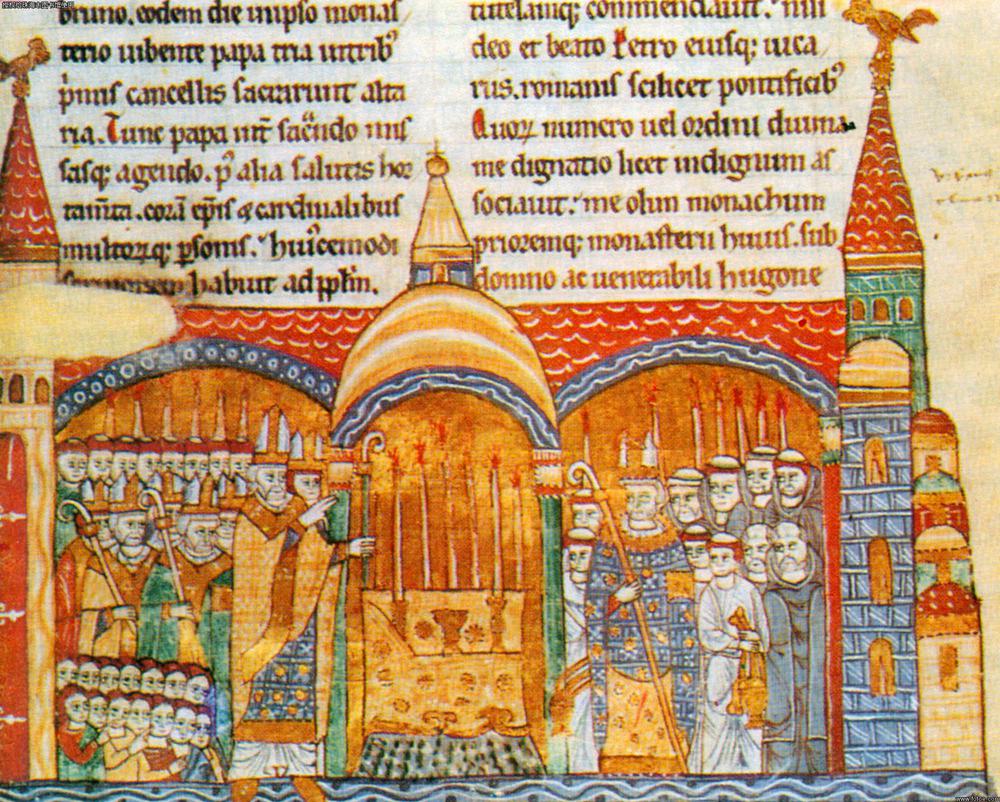 bruno. eodem die in ipso monas
terio iubente papa tria in trib'
p'mis cancellis sacrarunt alta
ria. Tunc papa int' sac'ndo mis
sasq; agendo. p' alia salutis hor
multorūq; p'sonis. huic'emodi
habuit ad pp'lm.
tutelamq; commendauit.
deo et beato Petro eiusq; uica
riis. romanis scilicet pontificib'
Quorum numero uel ordini diuina
me dignatio licet indignum as
sociauit: me olim monachum
prioremq; monasterii huius. sub
domno ac uenerabili hugone